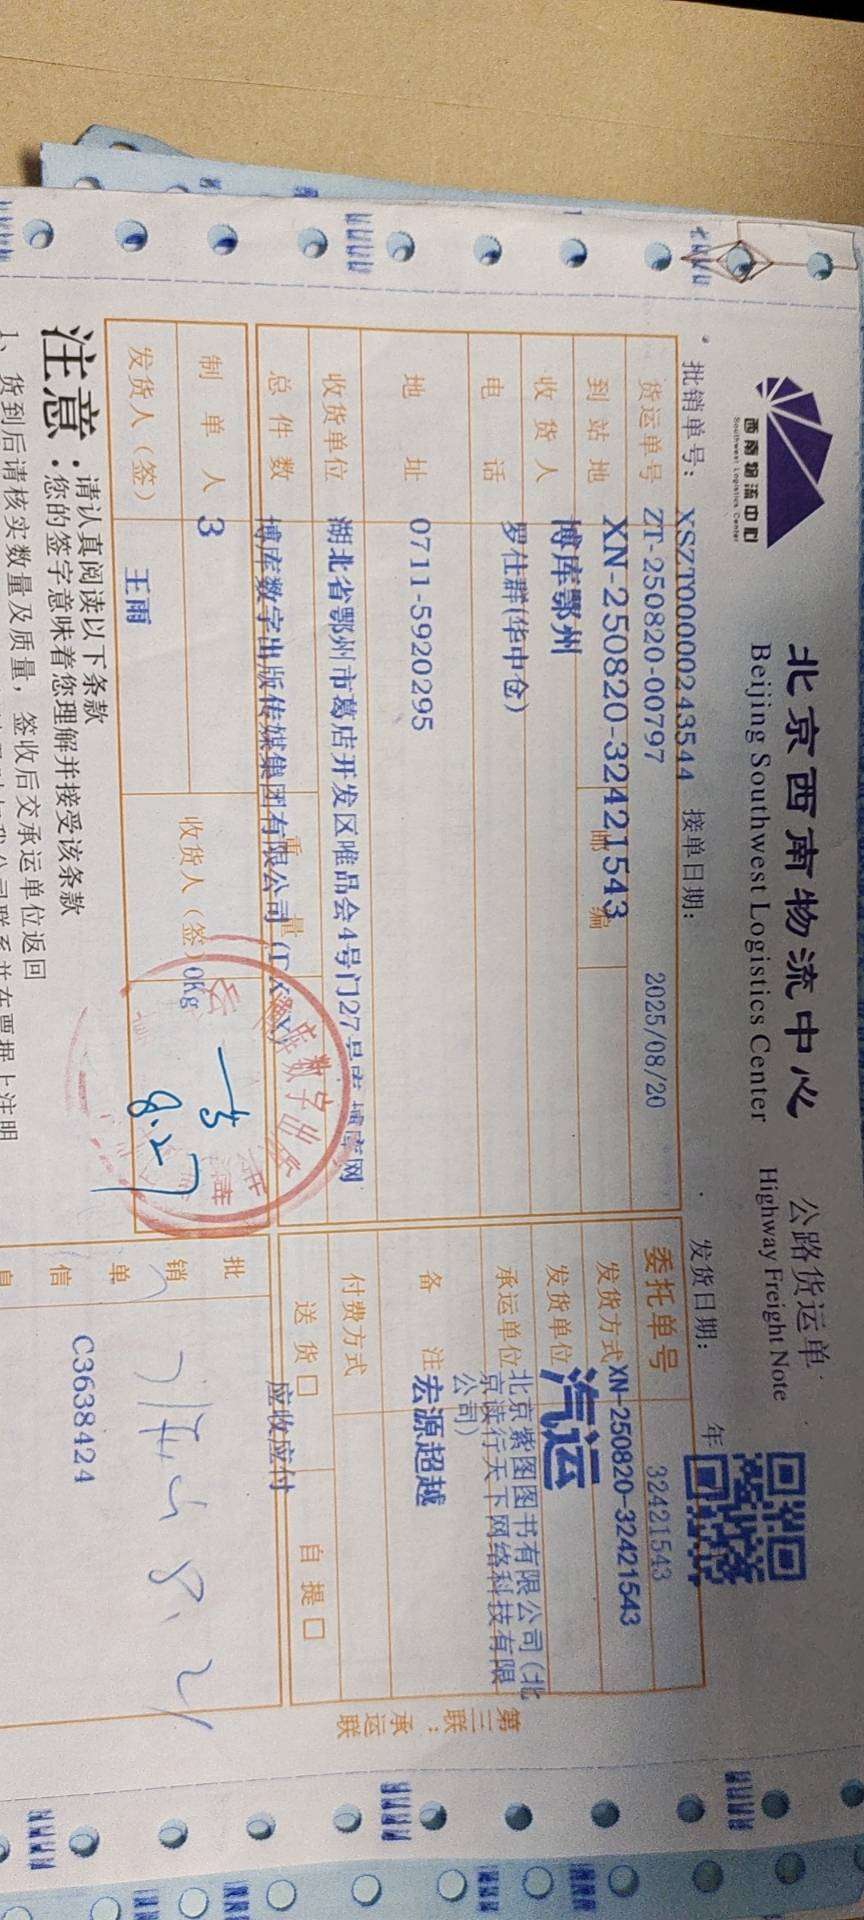 西南物流中心
Southwest Logistics Center
北京西南物流中心
Beijing Southwest Logistics Center
公路货运单
Highway Freight Note
批销单号: XSZT00000243544 接单日期: 2025/08/20 发货日期: 年
货运单号 ZT-250820-00797
XN-250820-32421543
到站地 博库鄂州 邮编
收货人 罗仕群(华中仓)
电话 0711-5920295
地址 湖北省鄂州市葛店开发区唯品会4号门27号库 博库网
收货单位 博库数字出版传媒集团有限公司
总件数 3 重量 0Kg
制单人 王雨 收货人(签)
8.27
发货人(签)
委托单号 32421543
XN-250820-32421543
发货方式 汽运
发货单位 北京紫图图书有限公司(北京读行天下网络科技有限公司)
承运单位 宏源超越
备注
付费方式 应收应付
送货口 自提口
批销单信息
C3638424
8.21
第三联:承运联
注意:
请认真阅读以下条款
您的签字意味着您理解并接受该条款
1、货到后请核实数量及质量,签收后交承运单位返回